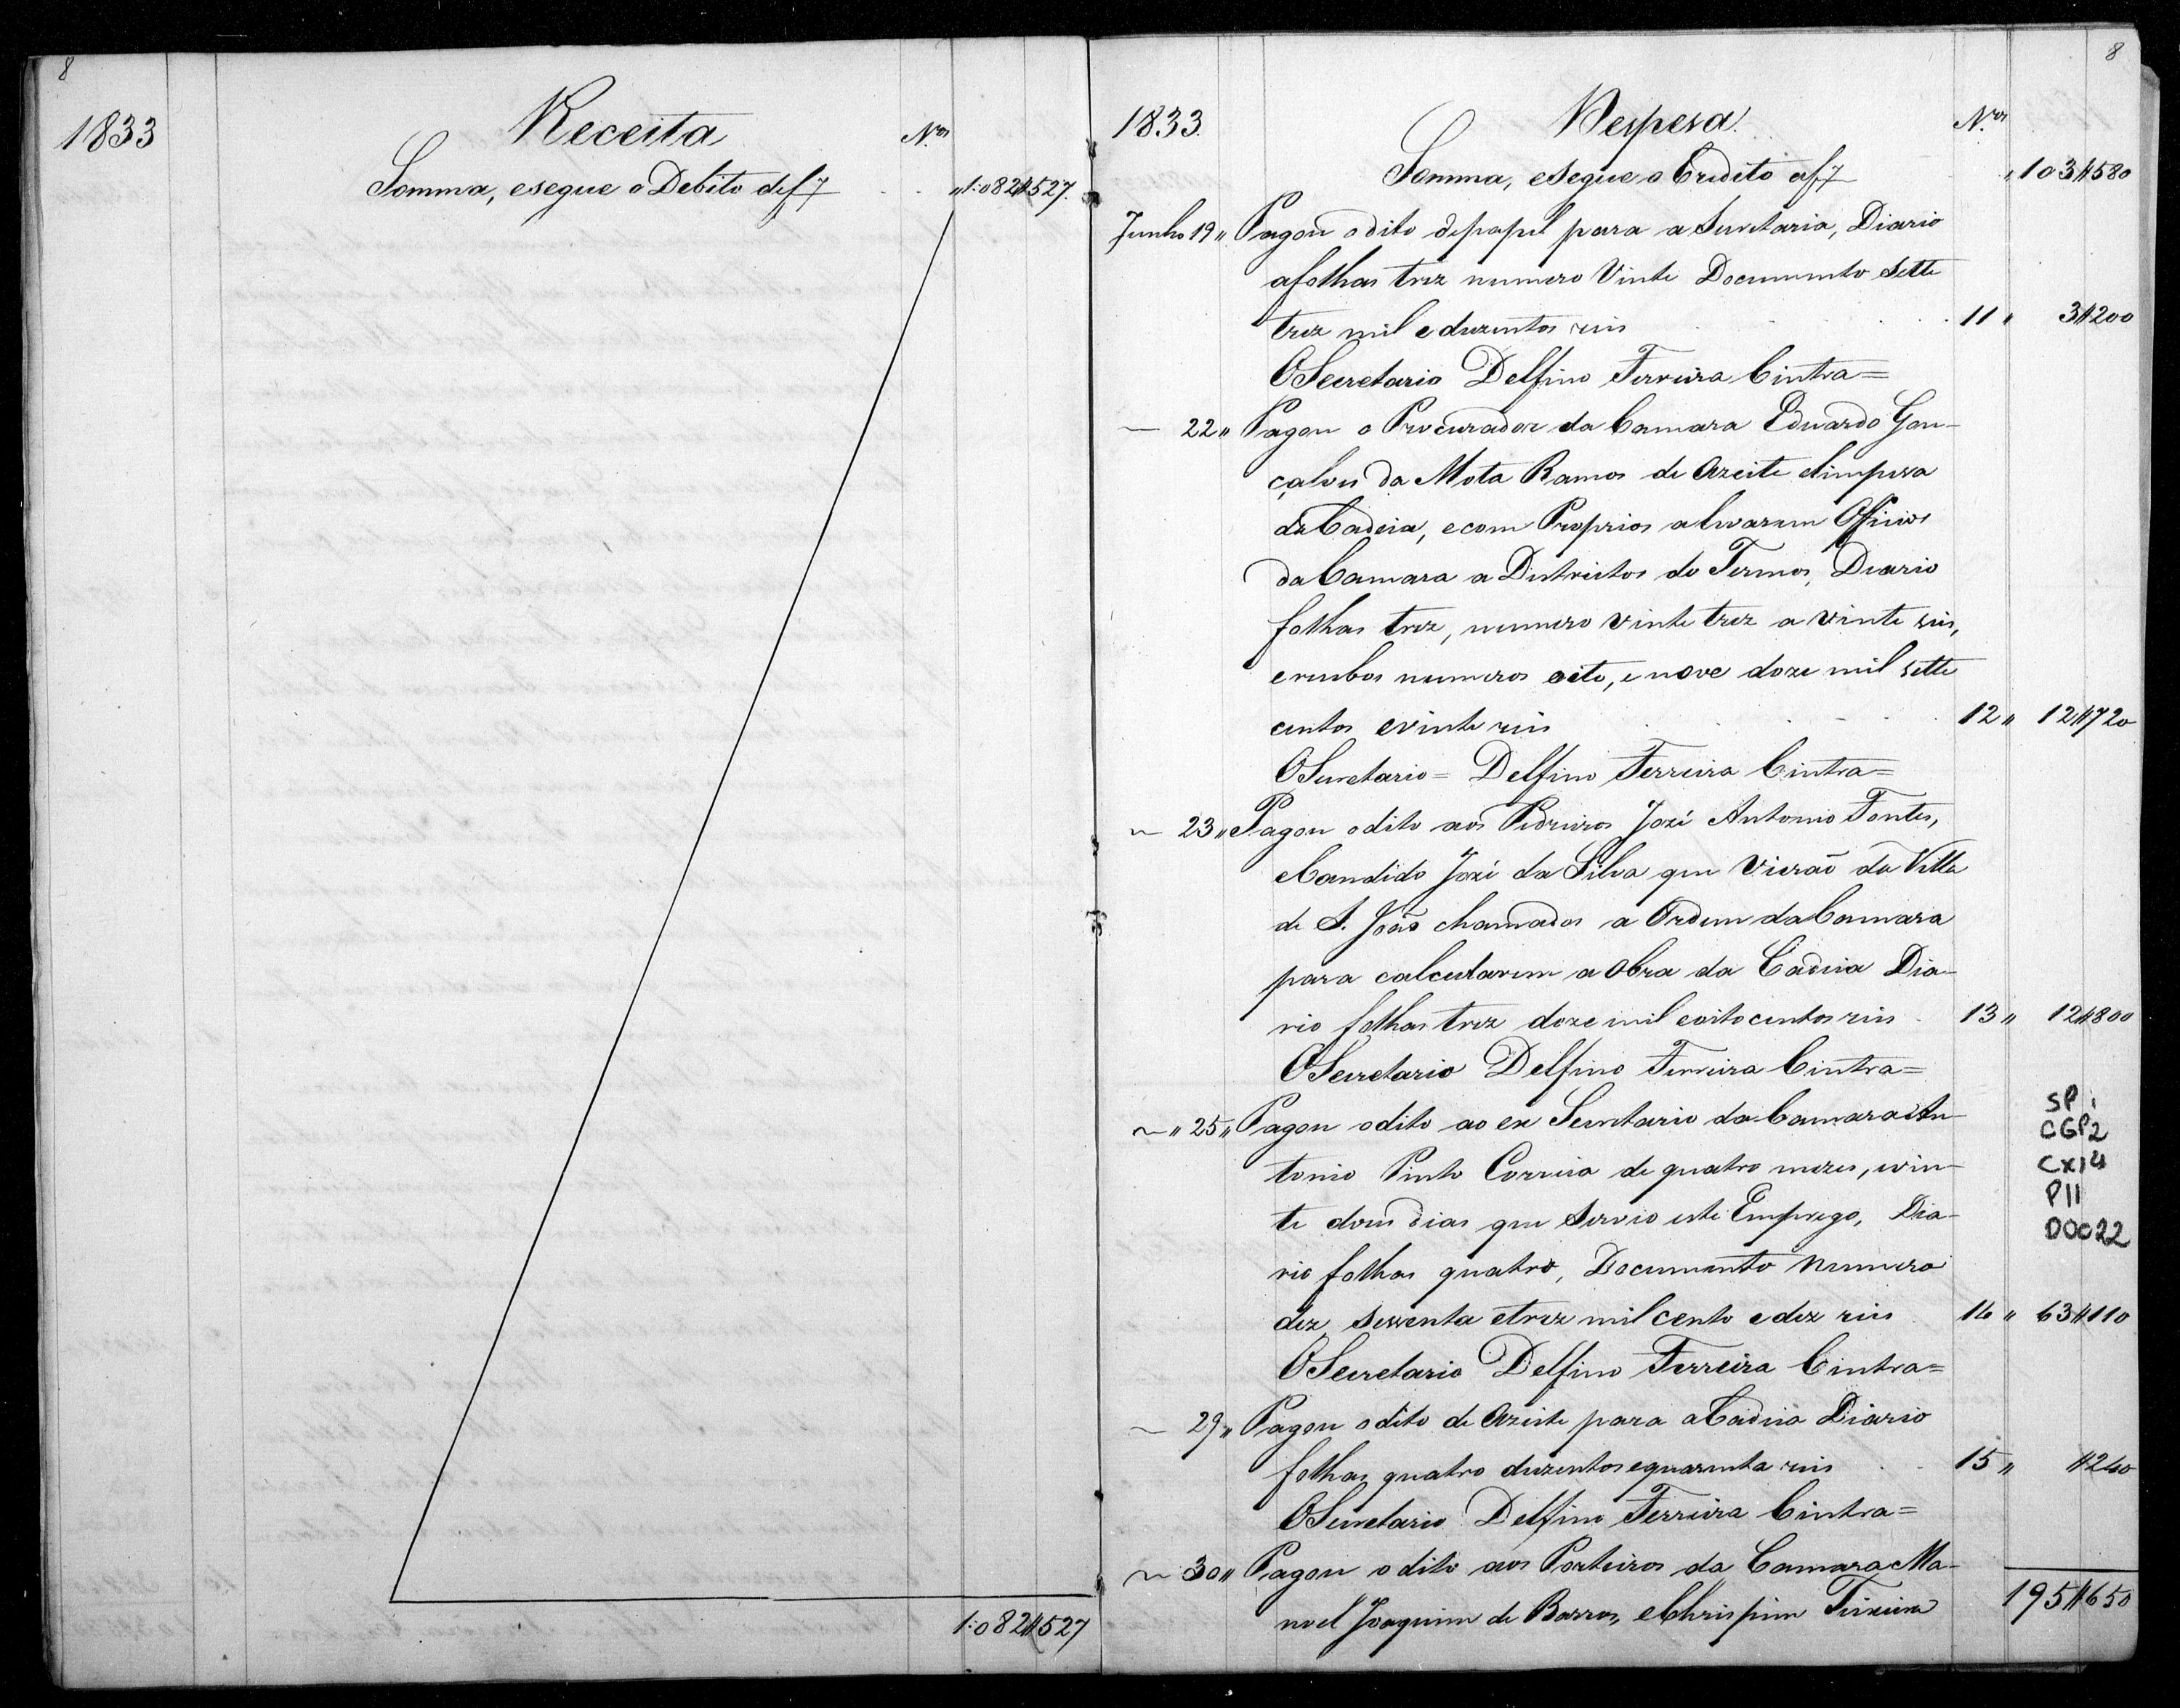 8
1833
Receita
N.os
Somma, e segue o Debito de f 7 . . " 1:082$527.
1:082$527
8
1833.
Despesa.
N.os
Somma, e segue o Credito a f 7 " 103$580
Junho 19 " Pagou o dito de papel para a Secretaria, Diario
a folhas trez numero Vinte Documento Sette
trez mil e duzentos reis . . . . 11 " 3$200
O Secretario Delfino Ferreira Cintra =
— 22 " Pagou o Procurador da Camara Eduardo Gon-
çalves da Mota Ramos de Azeite e limpesa
da Cadeia, e com Proprios a levarem Officios
da Camara a Districtos do Termos, Diario
folhas trez, numero vinte trez a vinte seis,
e recibos numeros oito, e nove doze mil sette
centos e vinte reis . . . . 12 " 12$720
O Secretario = Delfino Ferreira Cintra =
~ 23 " Pagou o dito aos Pedreiros Jozé Antonio Fontes,
e Candido Jozé da Silva que vierão da Villa
de S. João chamados a Ordem da Camara
para calcularem a obra da Cadeia Dia-
rio folhas trez doze mil e oito centos reis . 13 " 12$800
O Secretario Delfino Ferreira Cintra =
~ " 25 " Pagou o dito ao ex Secretario da Camara An-
tonio Pinto Correia de quatro mezes, e vin-
te dous dias que servio este Emprego, Dia-
rio folhas quatro, Documento numero
dez, sessenta e trez mil cento e dez reis 14 " 63$110
O Secretario Delfino Ferreira Cintra =
~ 29 " Pagou o dito de Azeite para a Cadeia Diario
folhas quatro duzentos e quarenta reis . . 15 " $240
O Secretario Delfino Ferreira Cintra =
~ 30 " Pagou o dito aos Porteiros da Camara Ma-
noel Joaquim de Barros, e Chrispim Teixeira
195$650
SP
CGP2
Cx14
P11
D0022